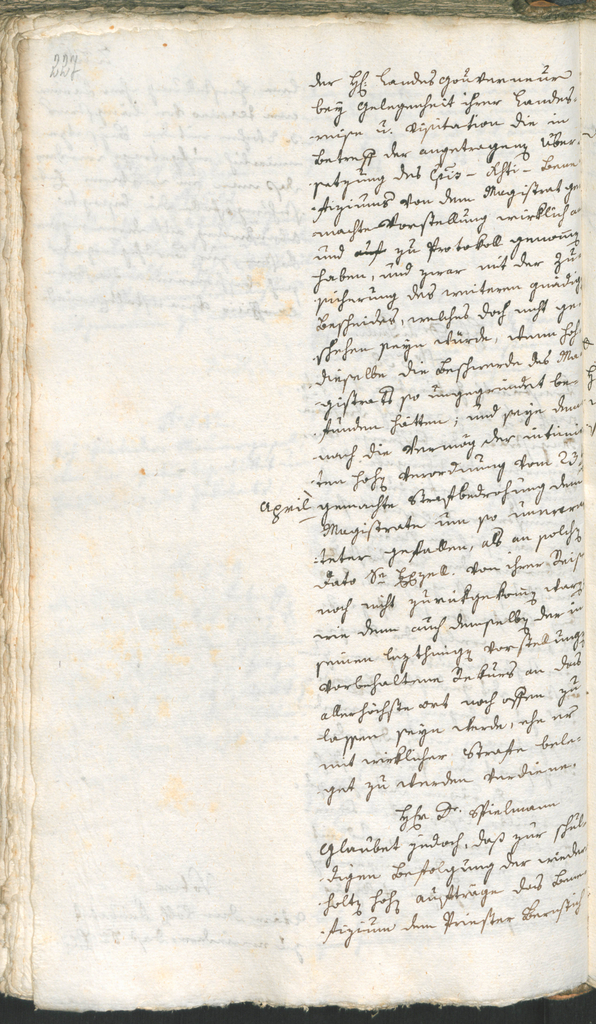 227
der H. H. Landes Gouverneur
bey Gelegenheit ihrer Landes-
reise u. Visitation die in
Betreff der angetragenen Über-
setzung des Corp- Xsti- Bene-
fiziums von dem Magistrat ge
machte Vorstellung wirklich a
und auch zu Protokoll genomen
haben, und zwar mit der Zu-
sicherung des weiteren gnädig
Bescheides, welches doch nicht ge-
schehen seyn würde, wenn Hoch
dieselbe die Beschwerde des Ma-
gistrats so ungegründet be-
funden hätten; und seye dem-
nach die vermög der intimir-
ten hohen Verordnung vom 23.
April gemachte Strafbedrohung dem
Magistrate um so unerwar
teter gefallen, als an solchen
Dato Se Exzell. von ihrer Reise
noch nicht zurückgekommen waren
wie denn auch demselben der in
seinen letzthinigen Vorstellungen
vorbehaltene Rekurs an das
allerhöchste Ort noch offen zu
lassen seyn werde, ehe er
mit wirklicher Strafe bele-
get zu werden verdiene.
Hr. Dr. Spielmann
Glaubet jedoch, daß zur schul-
digen Befolgung der wieder
holten hohen Aufträge das Bene-
fizium dem Priester